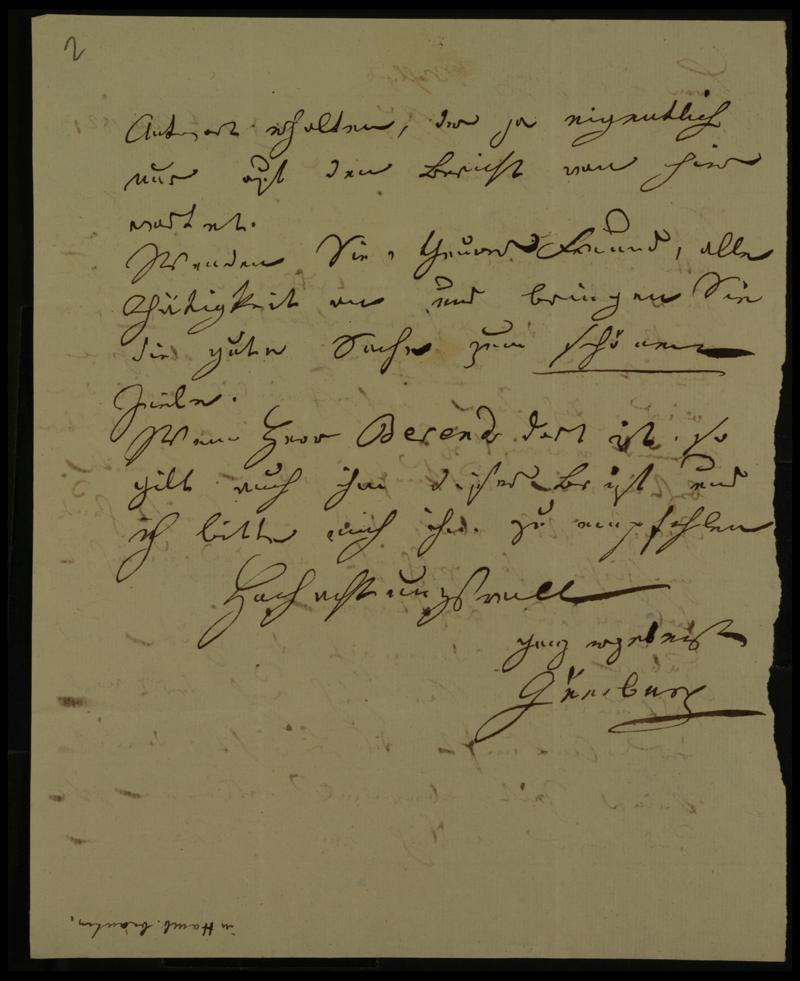 2
Antwort erhalten, der ja eigentlich
nur auf den Bericht von hier
wartet.
Wenden Sie, theurer Freund, alle
Thätigkeit an und bringen Sie
die gute Sache zum schönen
Ziele.
Wenn Herr Berend dort ist, so
gilt auch ihm dieser Brief und
ich bitte mich ihm zu empfehlen
Hochachtungsvoll
ganz ergebenst
in Hamb.